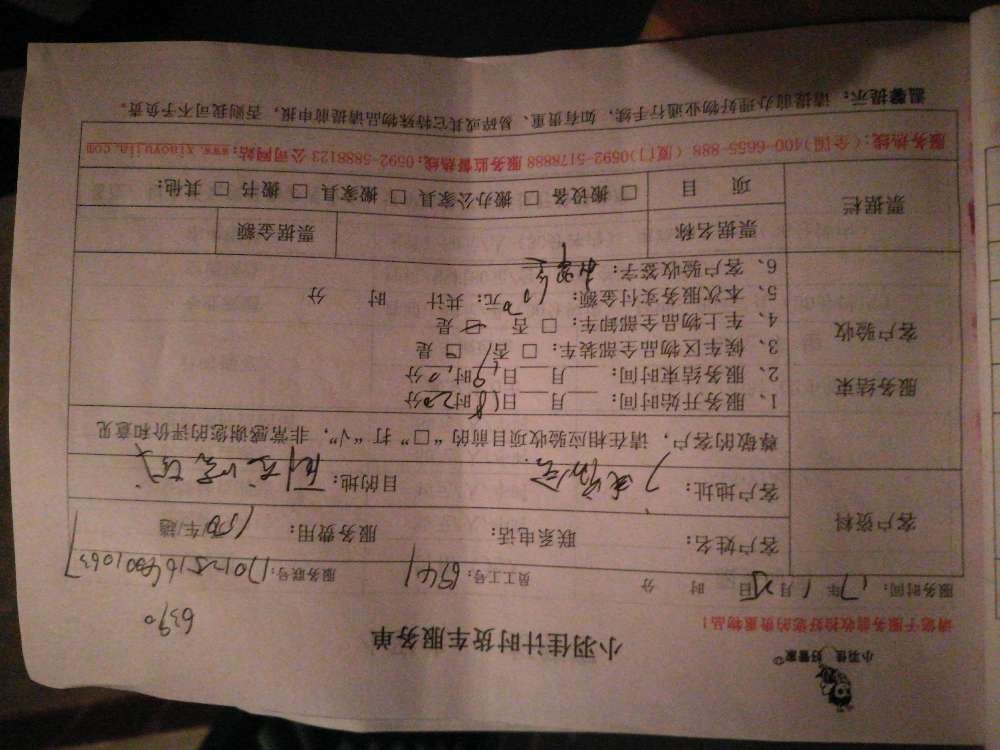 小羽佳 好管家
小羽佳计时货车服务单
6390
请您于服务前收拾好您的贵重物品!
服务时间: 17年1月25日 时 分 员工工号: 6541 服务联号:
客户资料
客户姓名: 联系电话: 服务费用: 150/车/趟
客户地址: 目的地:
尊敬的客户, 请在相应验收项目前的“□”打“√”, 非常感谢您的评价和意见
服务结束
客户验收
1、服务开始时间: 月 日18时20分
2、服务结束时间: 月 日19时10分
3、候车区物品全部装车: □ 否 □ 是
4、车上物品全部卸车: □ 否 □ 是
5、本次服务实付金额: 元; 共计 时 分
6、客户验收签字:
票据栏
票据名称 票据金额
项 目 □ 搬设备 □ 搬办公家具 □ 搬家具 □ 搬书 □ 其他:
服务热线: (全国)400-6655-888 (厦门)0592-5178888 服务监督热线: 0592-5888123 公司网站: www.xiaoyujia.com
温馨提示: 请提前办理好物业通行手续, 如有贵重、易碎或其它特殊物品请提前申报, 否则我司不予负责。